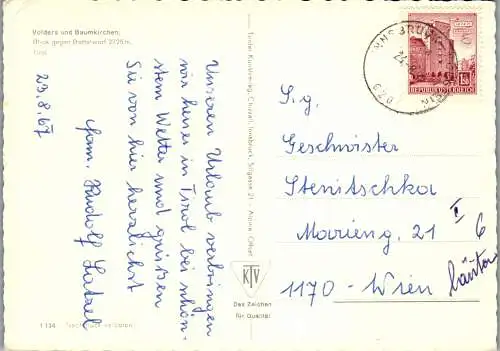 Volders und Baumkirchen,
Blick gegen Bettelwurf 2725 m,
Tirol
29.8.67
Unseren Urlaub verbringen
wir heuer in Tirol bei schön-
stem Wetter und grüßen
Sie von hier herzlichst
Fam. Rudolf
1134
Tiroler Kunstverlag Chizzali, Innsbruck, Sillgasse 21
KTV
Das Zeichen
für Qualität
INNSBRUCK
REPUBLIK ÖSTERREICH
S.g.
Geschwister
Stenitschka
Marieng. 21 I 6
1170 - Wien